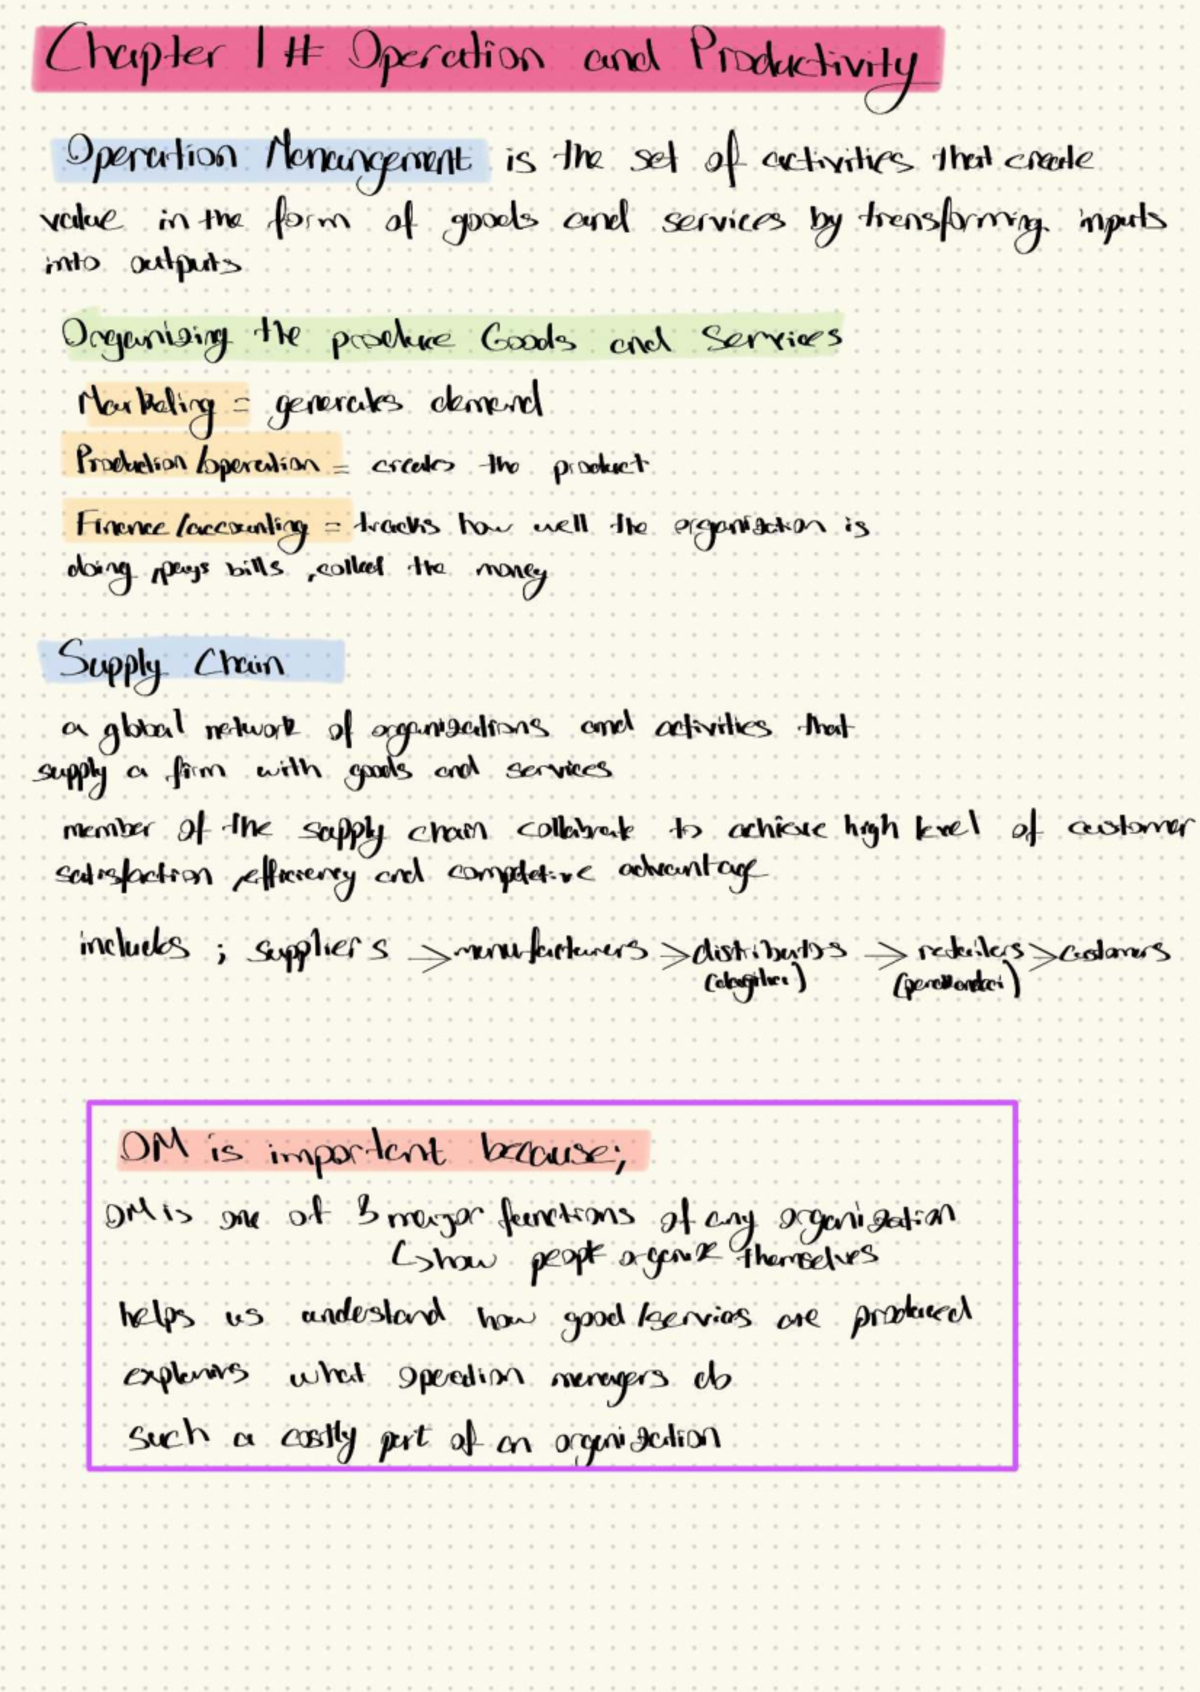 Chapter 1 # Operation and Productivity
Operation Menangement is the set of activities that create
value in the form of goods and services by transforming inputs
into outputs
Organising the produce Goods and Services
Marketing = generates demand
Production/operation = creates the product
Finance/accounting = tracks how well the organisation is
doing, pays bills, collect the money
Supply Chain
a global network of organizations and activities that
supply a firm with goods and services
member of the supply chain collabrate to achieve high level of customer
satisfaction, efficiency and competetive advantage
includes ; suppliers > manufacturers > distributors -> retailers > customers
OM is important because;
OM is one of 3 major functions of any organization
how people organize themselves
helps us understand how good/services are produced
explains what operation managers do
such a costly part of an organization